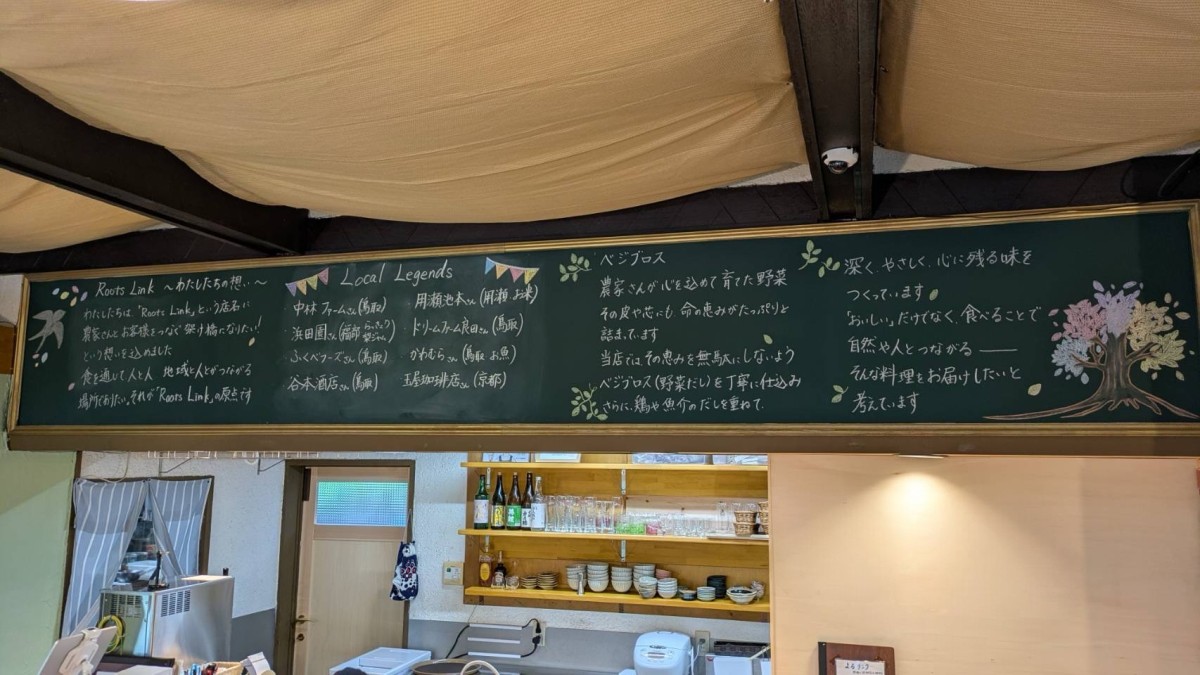 Roots Link ～わたしたちの想い～
わたしたちは、"Roots Link"という店名に
農家さんとお客様をつなぐ架け橋になりたい!
という想いを込めました
食を通じて人と人 地域と人とがつながる
場所でありたい。それが"Roots Link"の原点です
Local Legends
中林ファームさん(鳥取)
浜田園さん(福部 らっきょう 梨じゃん)
ふくべフーズさん(鳥取)
谷本酒店さん(鳥取)
用瀬池本さん(用瀬 お米)
ドリームファーム良田さん(鳥取)
かわむらさん(鳥取 お魚)
玉屋珈琲店さん(京都)
ベジブロス
農家さんが心を込めて育てた野菜
その皮や芯にも、命の恵みがたっぷりと
詰まっています
当店では、その恵みを無駄にしないよう
ベジブロス(野菜だし)を丁寧に仕込み
さらに、鶏や魚介のだしを重ねて、
深く、やさしく、心に残る味を
つくっています
「おいしい」だけでなく、食べることで
自然や人とつながる――
そんな料理をお届けしたいと
考えています